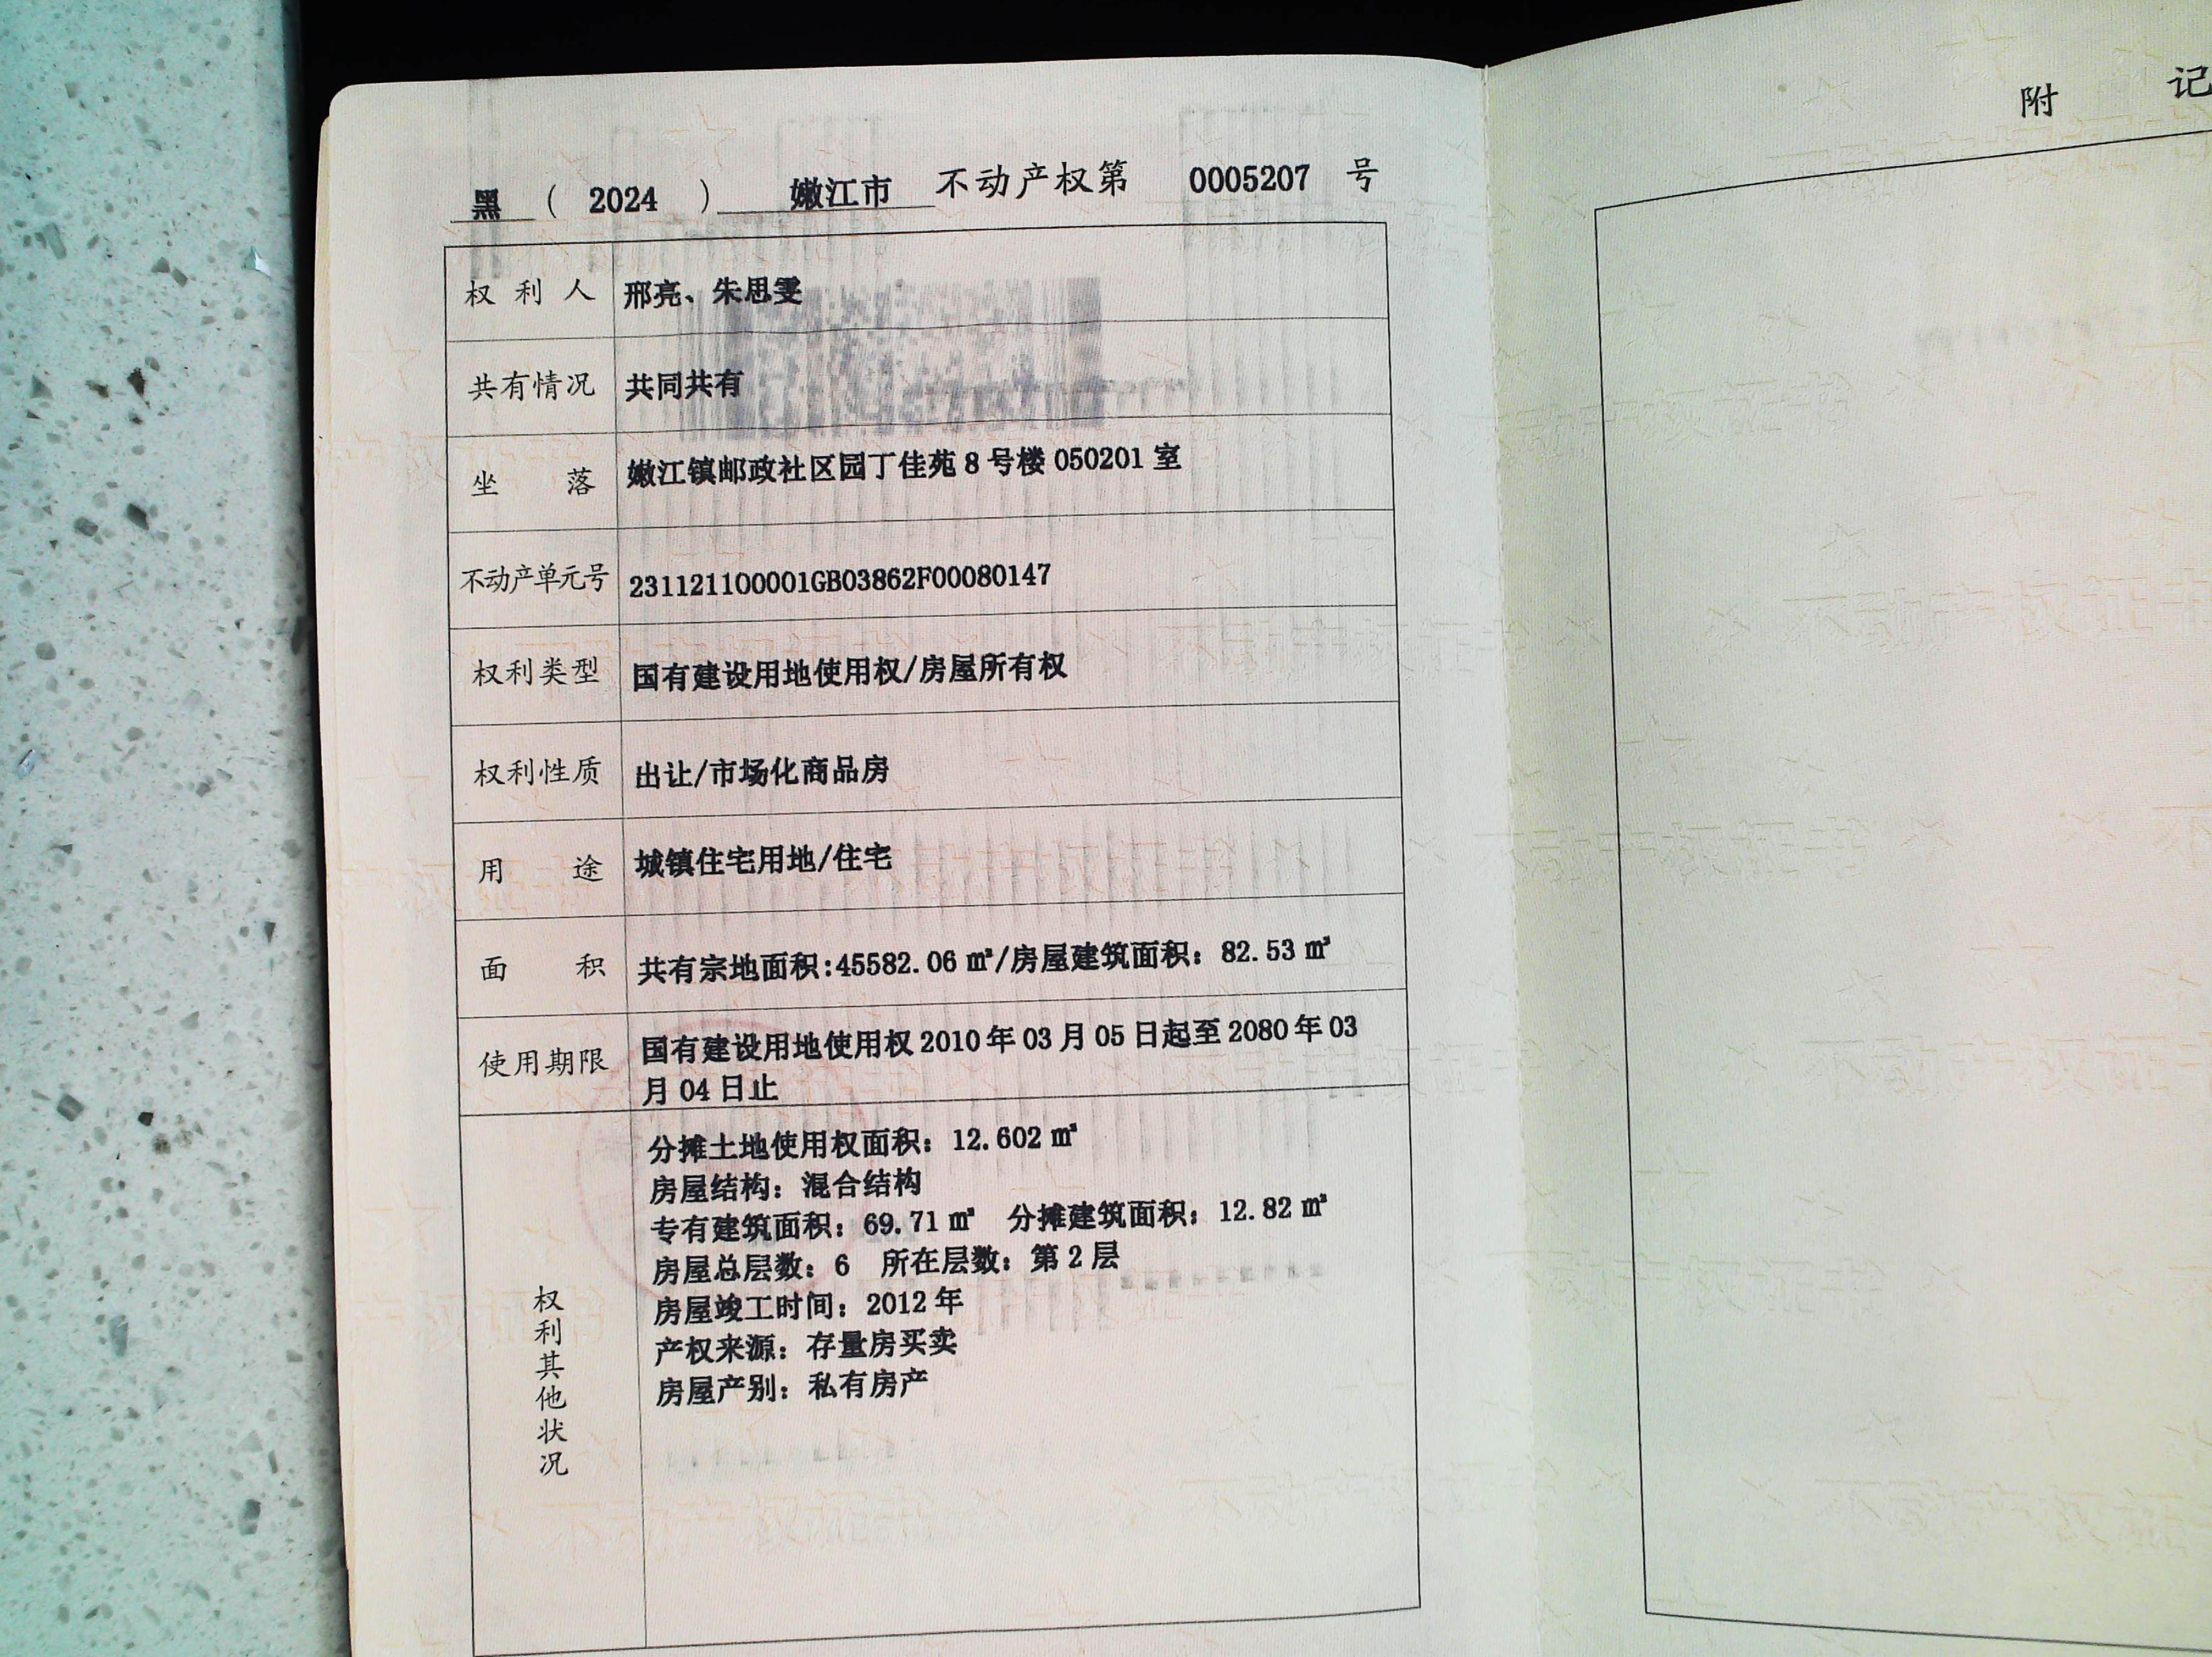 黑 ( 2024 ) 嫩江市 不动产权第 0005207 号
权利人 邢亮、朱思雯
共有情况 共同共有
坐落 嫩江镇邮政社区园丁佳苑 8 号楼 050201 室
不动产单元号 231121100001GB03862F00080147
权利类型 国有建设用地使用权/房屋所有权
权利性质 出让/市场化商品房
用途 城镇住宅用地/住宅
面积 共有宗地面积:45582.06 ㎡/房屋建筑面积：82.53 ㎡
使用期限 国有建设用地使用权 2010 年 03 月 05 日起至 2080 年 03
月 04 日止
权利其他状况
分摊土地使用权面积：12.602 ㎡
房屋结构：混合结构
专有建筑面积：69.71 ㎡ 分摊建筑面积：12.82 ㎡
房屋总层数：6 所在层数：第 2 层
房屋竣工时间：2012 年
产权来源：存量房买卖
房屋产别：私有房产
附 记